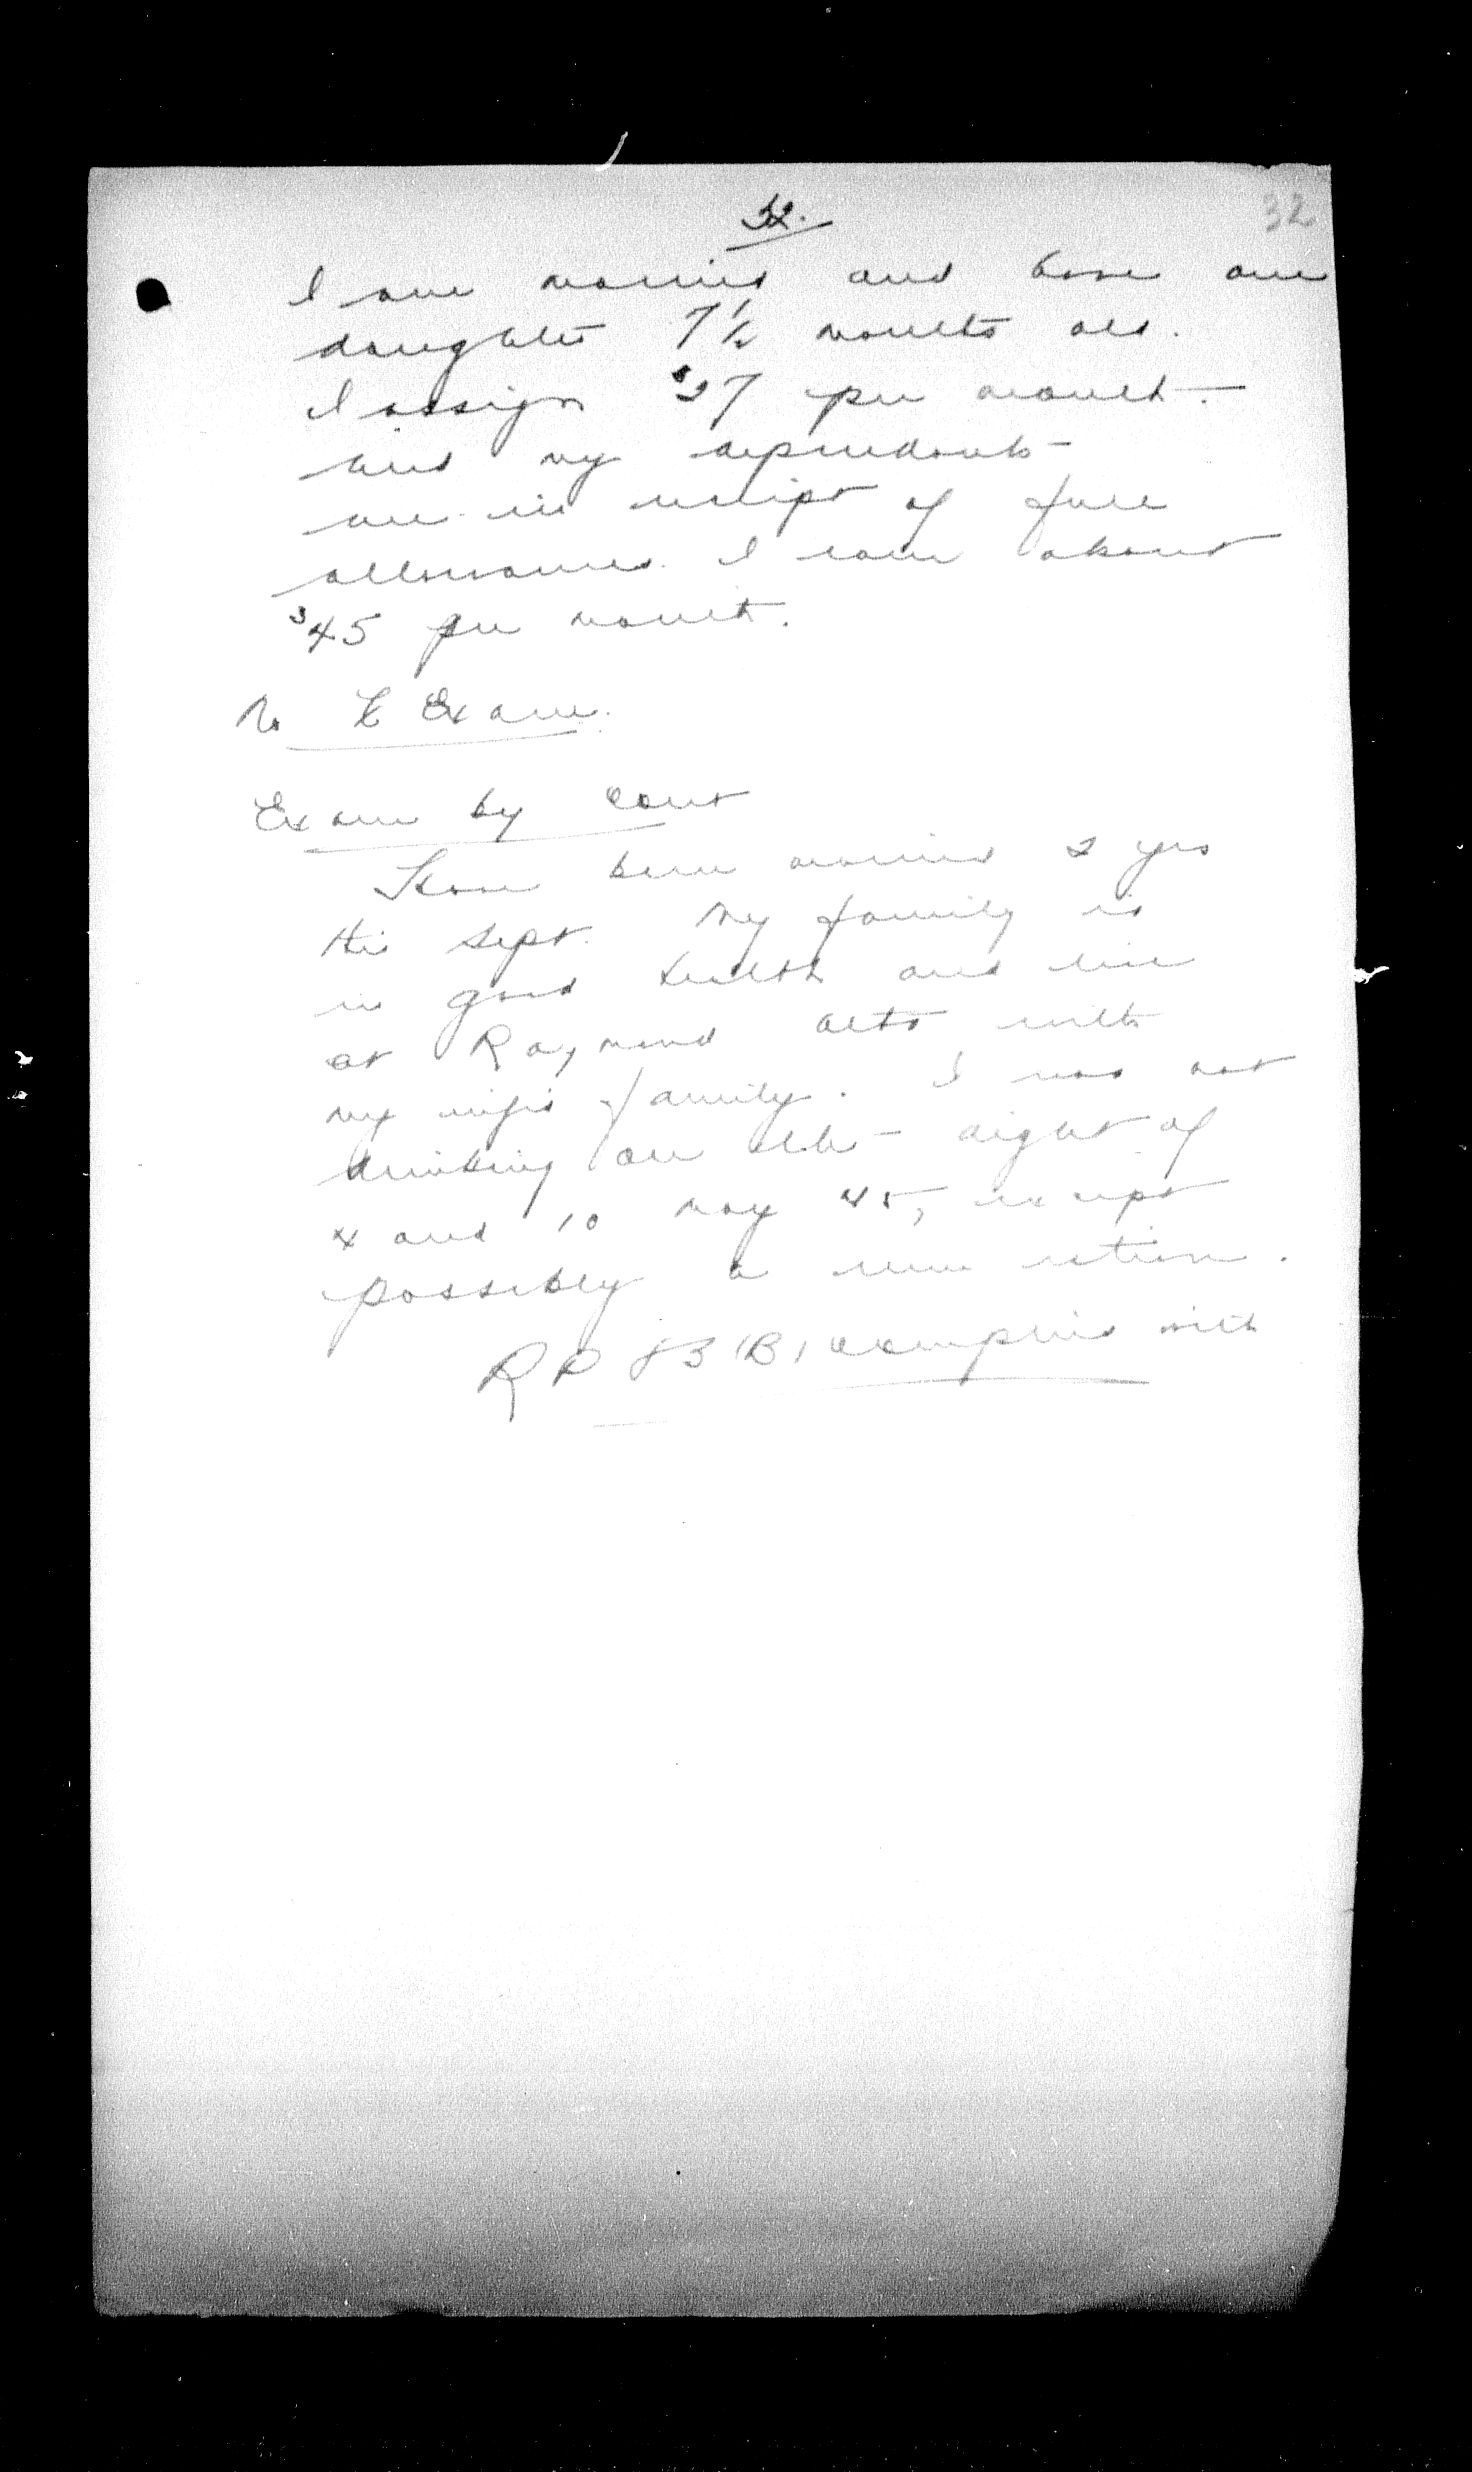 32.
32
I am married and have one
daughter 7½ months old.
I assign $27 per month
and my dependants
are in receipt of full
allowances. I earn about
$45 per month.
No X Exam.
Exam by Court
Have been married 2 yrs
this Sept. My family is
in good health and live
at Raymond Alta with
my wife's family. I was not
drinking on the night of
4 and 10 May 45, except
possibly a rum ration.
RP 83 (B) complied with